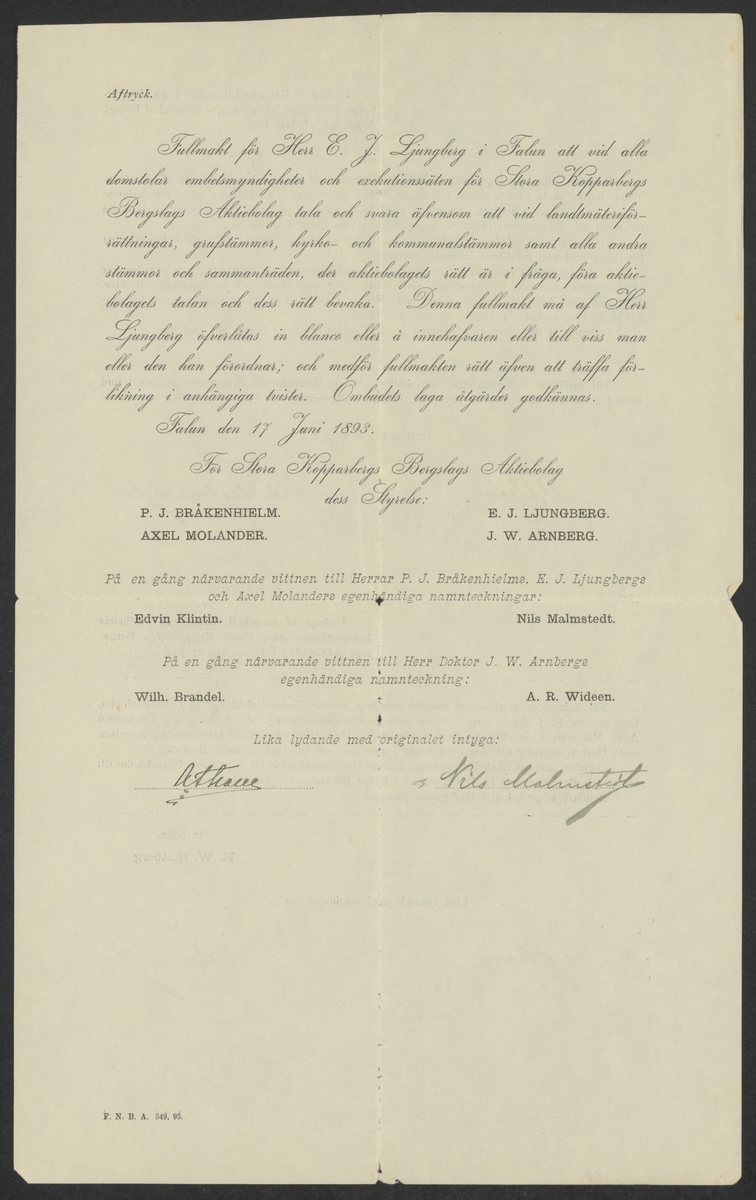 Aftryck.
Fullmakt för Herr E. J. Ljungberg i Falun att vid alla
domstolar embetsmyndigheter och exekutionssäten för Stora Kopparbergs
Bergslags Aktiebolag tala och svara äfvensom att vid landtmäteriför-
rättningar, grufstämmor, kyrko- och kommunalstämmor samt alla andra
stämmor och sammanträden, der aktiebolagets rätt är i fråga, föra aktie-
bolagets talan och dess rätt bevaka. Denna fullmakt må af Herr
Ljungberg öfverlåtas in blanco eller å innehafvaren eller till viss man
eller den han förordnar; och medför fullmakten rätt äfven att träffa för-
likning i anhängiga tvister. Ombudets laga åtgärder godkännas.
Falun den 17 Juni 1893.
För Stora Kopparbergs Bergslags Aktiebolag
dess Styrelse:
P. J. BRÅKENHIELM. E. J. LJUNGBERG.
AXEL MOLANDER. J. W. ARNBERG.
På en gång närvarande vittnen till Herrar P. J. Bråkenhielms, E. J. Ljungbergs
och Axel Molanders egenhändiga namnteckningar:
Edvin Klintin. Nils Malmstedt.
På en gång närvarande vittnen till Herr Doktor J. W. Arnbergs
egenhändiga namnteckning:
Wilh. Brandel. A. R. Wideen.
Lika lydande med originalet intyga:
Nils Malmstedt
F. N. B. A. 549, 93.